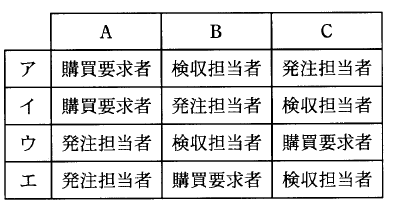 A B C
ア 購買要求者 検収担当者 発注担当者
イ 購買要求者 発注担当者 検収担当者
ウ 発注担当者 検収担当者 購買要求者
エ 発注担当者 購買要求者 検収担当者